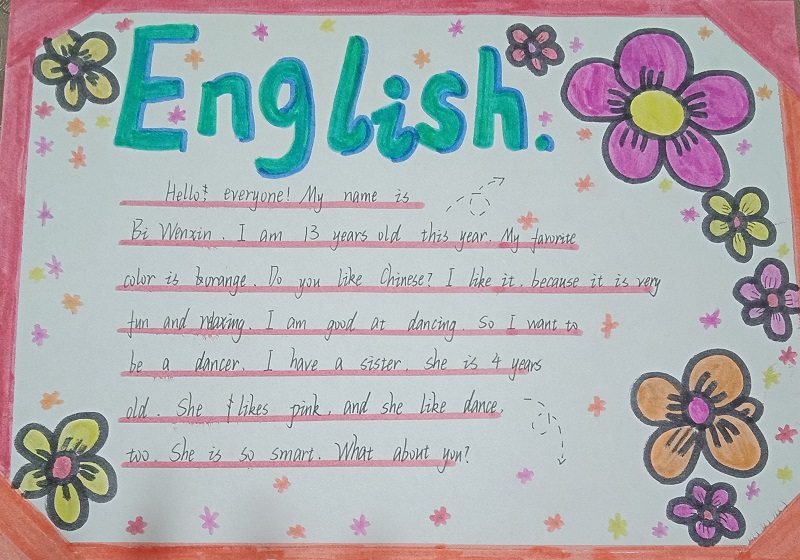 English.
Hello! everyone! My name is
Bi Wenxin. I am 13 years old this year. My favorite
color is orange. Do you like Chinese? I like it, because it is very
fun and relaxing. I am good at dancing. So I want to
be a dancer. I have a sister. she is 4 years
old. She likes pink, and she like dance,
too. She is so smart. What about you?